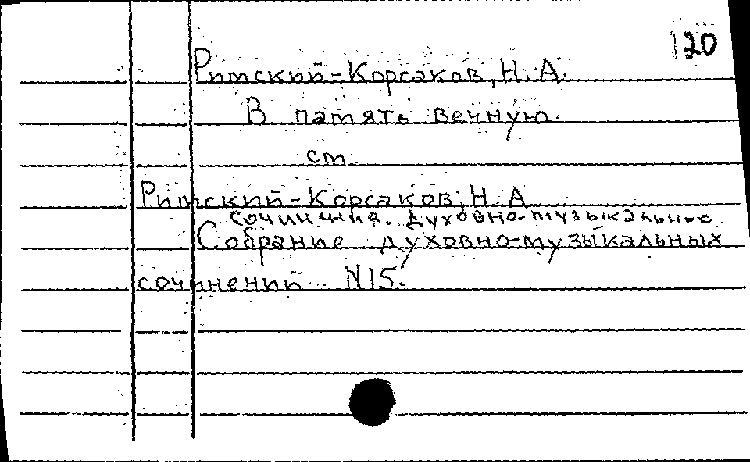 120
Римский-Корсаков, Н. А.
В память вечную.
см.
Римский-Корсаков, Н. А
Сочинения. Духовно-музыкальные
Собрание духовно-музыкальных
сочинений N15.